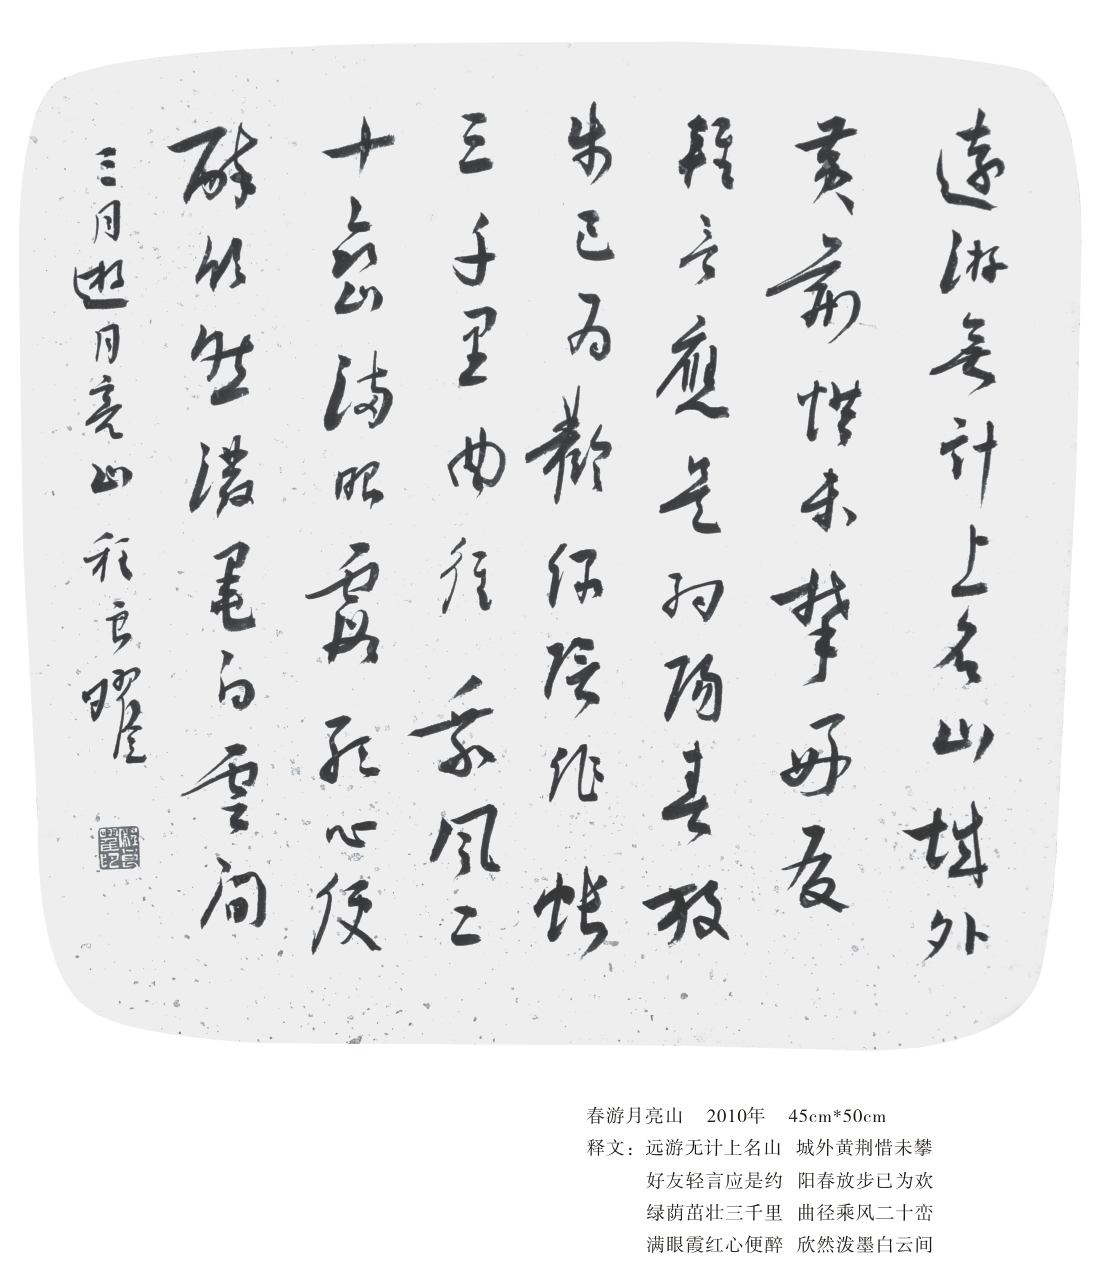 遠游無計上名山城外
黄荊惜未攀好友
輕言應是約陽春放
步已為歡綠蔭作帳
三千里曲徑乘風二
十巒滿眼霞紅心便
醉欣然潑墨白雲間
三月遊月亮山 程良
春游月亮山 2010年 45cm*50cm
释文：远游无计上名山 城外黄荆惜未攀
好友轻言应是约 阳春放步已为欢
绿荫茁壮三千里 曲径乘风二十峦
满眼霞红心便醉 欣然泼墨白云间